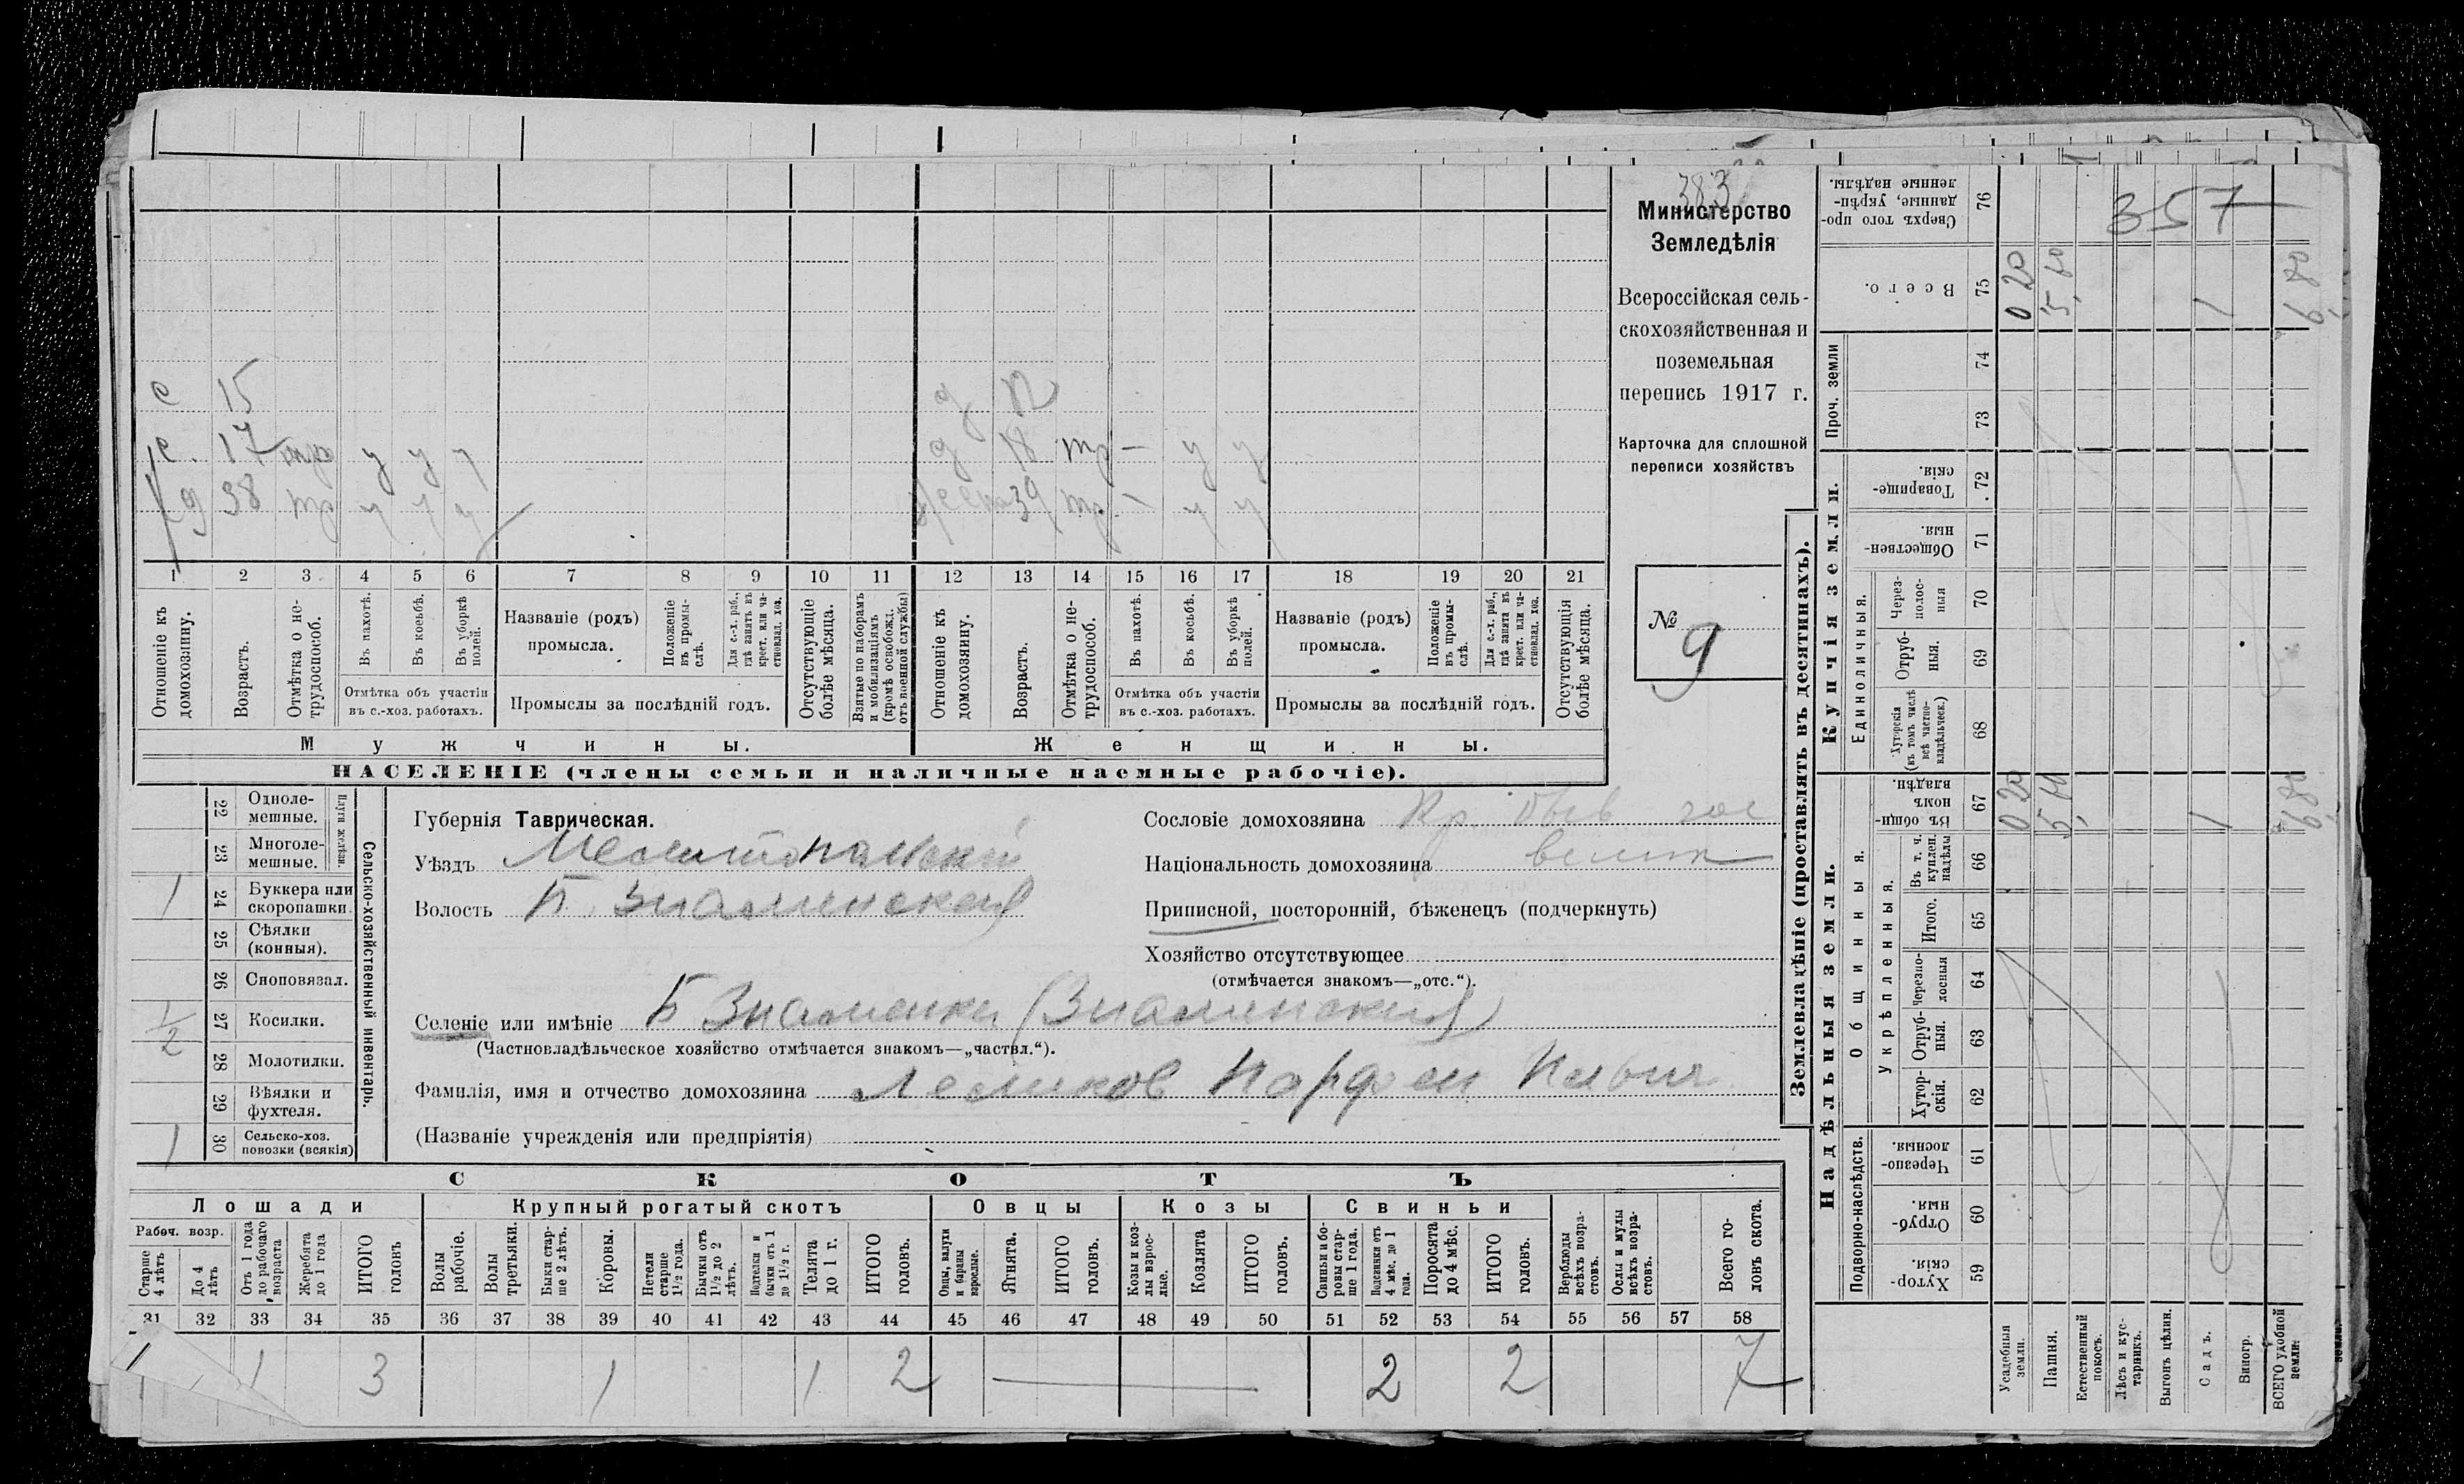 383
Министерство
Земледѣлія
Всероссійская сель-
скохозяйственная и
поземельная
перепись 1917 г.
Карточка для сплошной
переписи хозяйствъ
№ 9
с 15 д 12
с. 17 тр у у у д 18 тр — у у
д 38 тр у у у 39 тр — у у
1 2 3 4 5 6 7 8 9 10 11 12 13 14 15 16 17 18 19 20 21
Отношеніе къ домохозяину.
Возрастъ.
Отмѣтка о не-трудоспособ.
Въ пахотѣ.
Въ косьбѣ.
Въ уборкѣ полей.
Отмѣтка объ участіи
въ с.-хоз. работахъ.
Названіе (родъ)
промысла.
Положеніе въ промы-слѣ.
Для с.-х. раб., гдѣ занятъ въ крест. или ча-стновлад. хоз.
Промыслы за послѣдній годъ.
Отсутствующіе болѣе мѣсяца.
Взятые по наборамъ и мобилизаціямъ (кромѣ освобожд. отъ военной службы)
Отношеніе къ домохозяину.
Возрастъ.
Отмѣтка о не-трудоспособ.
Въ пахотѣ.
Въ косьбѣ.
Въ уборкѣ полей.
Отмѣтка объ участіи
въ с.-хоз. работахъ.
Названіе (родъ)
промысла.
Положеніе въ промы-слѣ.
Для с.-х. раб., гдѣ занята въ крест. или ча-стновлад. хоз.
Промыслы за послѣдній годъ.
Отсутствующія болѣе мѣсяца.
Мужчины. Женщины.
НАСЕЛЕНІЕ (члены семьи и наличные наемные рабочіе).
Сельско-хозяйственный инвентарь.
Плуги желѣзн.
22 Одноле-мешные.
23 Многоле-мешные.
1 24 Буккера или скоропашки.
25 Сѣялки (конныя).
26 Сноповязал.
1/2 27 Косилки.
28 Молотилки.
29 Вѣялки и фухтеля.
1 30 Сельско-хоз. повозки (всякія)
Губернія Таврическая.
Уѣздъ Мелитопольскій
Волость Б. Знаменская
Сословіе домохозяина Кр. бывв гос
Національность домохозяина велик
Приписной, посторонній, бѣженецъ (подчеркнуть)
Хозяйство отсутствующее
(отмѣчается знакомъ—„отс.“).
Селеніе или имѣніе Б Знаменка (Знаменская)
(Частновладѣльческое хозяйство отмѣчается знакомъ—„частвл.“).
Фамилія, имя и отчество домохозяина Лемиков Парфен
(Названіе учрежденія или предпріятія)
СКОТЪ
Лошади Крупный рогатый скотъ Овцы Козы Свиньи
Рабоч. возр.
Старше 4 лѣтъ
До 4 лѣтъ
Отъ 1 года до рабочаго возраста
Жеребята до 1 года
ИТОГО головъ
Волы рабочіе.
Волы третьяки.
Быки стар-ше 2 лѣтъ.
Коровы.
Нетели старше 1½ года.
Бычки отъ 1½ до 2 лѣтъ.
Подтелки и бычки отъ 1 до 1½ г.
Телята до 1 г.
ИТОГО головъ.
Овцы, валухи и бараны взрослые.
Ягнята.
ИТОГО головъ.
Козы и коз-лы взрос-лые.
Козлята
ИТОГО головъ.
Свиньи и бо-ровы стар-ше 1 года.
Подсвинки отъ 4 мѣс. до 1 года.
Поросята до 4 мѣс.
ИТОГО головъ.
Верблюды всѣхъ возра-стовъ.
Ослы и мулы всѣхъ возра-стовъ.
Всего го-ловъ скота.
31 32 33 34 35 36 37 38 39 40 41 42 43 44 45 46 47 48 49 50 51 52 53 54 55 56 57 58
1 3 1 1 2 — 2 2 7
Землевладѣніе (проставлять въ десятинахъ).
Надѣльныя земли.
Купчія земли.
Проч. земли
Подворно-наслѣдств.
Общинныя.
Укрѣпленныя.
Единоличныя.
Сверхъ того про-данные, укрѣп-ленные надѣлы. 76
Всего. 75
74
73
Товарище-скія. 72
Обществен-ныя. 71
Через-полос-ныя 70
Отруб-ныя. 69
Хуторскія (въ томъ числѣ всѣ частно-владѣльческ.) 68
Въ общин-номъ владѣн. 67
Въ т. ч. куплен. надѣлы 66
Итого. 65
Черезпо-лосныя 64
Отруб-ныя. 63
Хутор-скія. 62
Черезпо-лосныя 61
Отруб-ныя. 60
Хутор-скія. 59
357
0 20 5,60 1 6,80
0 20 5,60 1 6,80
Усадебныя земли.
Пашня.
Естественный покосъ.
Лѣсъ и кус-тарникъ.
Выгонъ цѣлин.
Садъ.
Виногр.
ВСЕГО удобной земли.